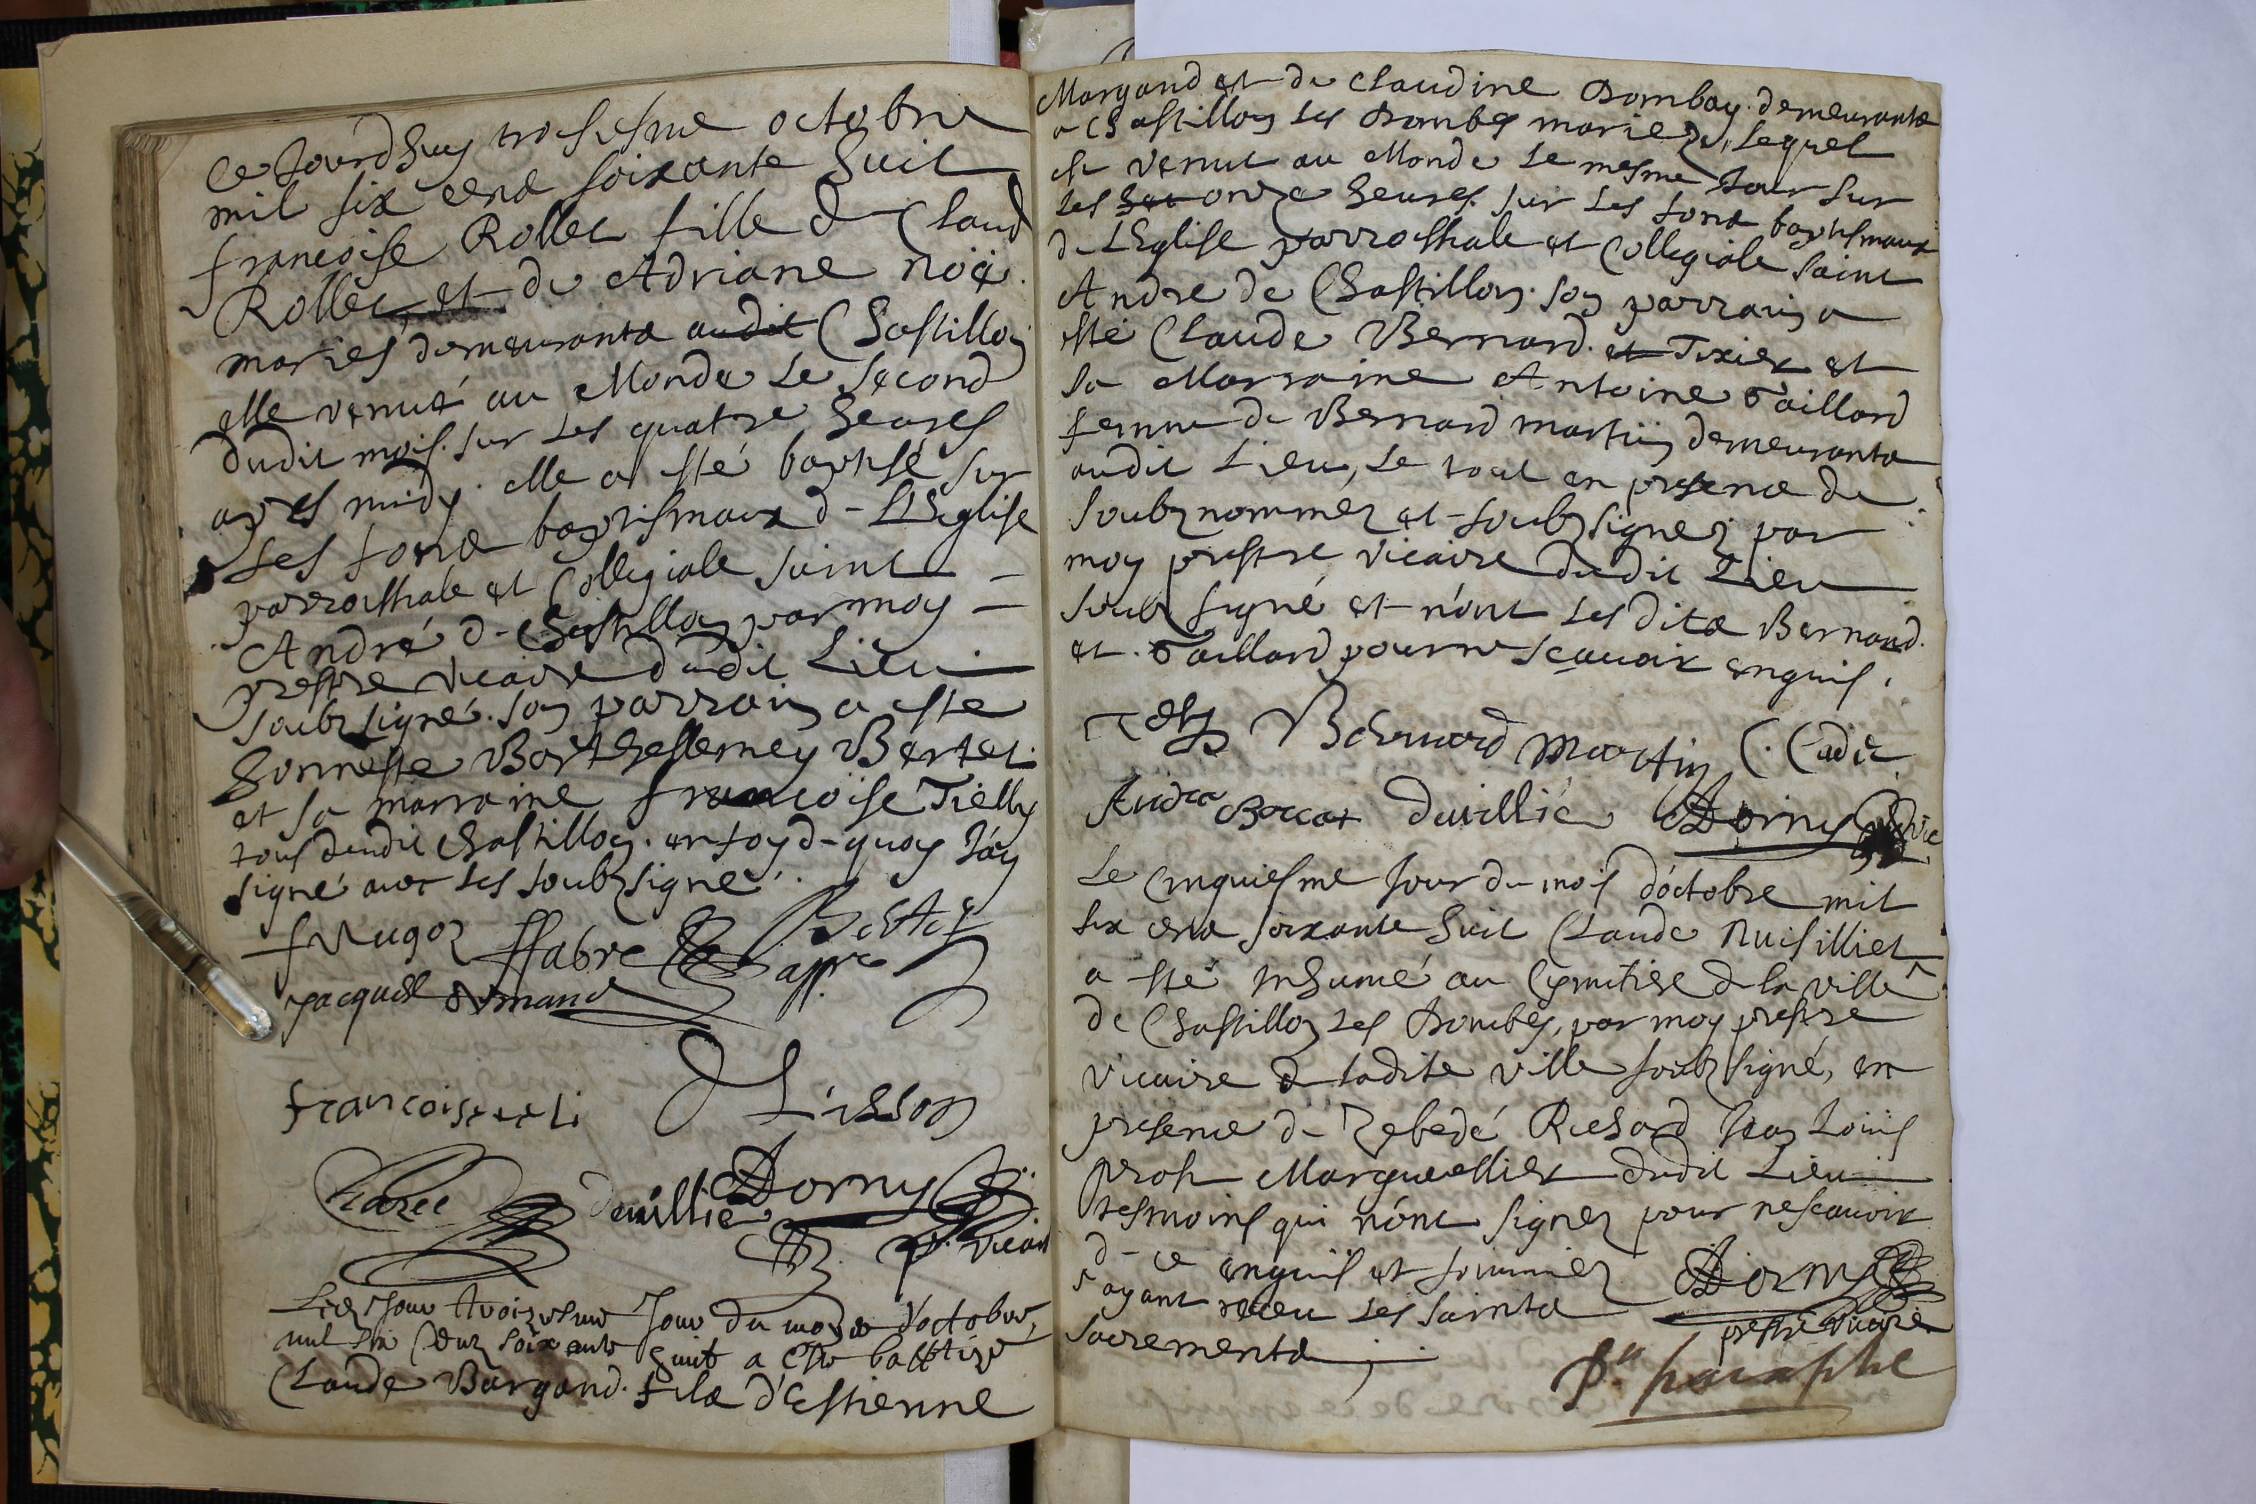 Ce Jourd'huy troisiesme octobre
mil six cens soixante huit
françoise Rollet fille de Claud
Rollet et de Adriane noë
mariés demeurants audit Chastillon
elle venué au Monde Le second
dudit mois sur Les quatre heures
apres midy. elle a esté baptisé sur
Les fons baptismaux de L'Eglise
parrochiale et Collegiale saint
André de Chastillon par moy
prestre vicaire dudit Lieu
soubzsigné. son parrain a este
honneste Barthellemey Bertet
et sa marraine françoise Tielly
tous dudit Chastillon. en foy de quoy J'ay
signé avec Les soubzsigné.
ffabre Bertet
Jacques
francoise teli Lisson
devillie Dorny
p. vicair
Jour troizeme Jour du moys d'octobre
mil six cens soixante huit a este baptizé
Claude Bargand. fils d'Estienne
Margand et de Claudine Dombay demeurants
a Chastillon Les dombes mariez, Lequel
est venut au Monde Le mesme Jour sur
Les onze heures sur Les fons baptismaux
de L'Eglise parrochiale et Collegiale saint
Andre de Chastillon. son parrain a
esté Claude Bernard. et Tixier et
sa Marraine Antoine Taillard
femme de Bernard martin demeurants
audit Lieu, Le tout en presence de
soubznommez et soubzsignez par
moy prestre vicaire dudit Lieu
soubz signé et n'ont Lesdits Bernard
et Taillard pour ne scavoir enquis.
Bernard Martin C. Cadit
Andrea Boccat devillié Dorny vic
Le cinquiesme Jour du mois d'octobre mil
six cens soixante huit Claude Nuisilliet
a esté inhumé au Cymitiere de la ville
de Chastillon Les Dombes, par moy prestre
vicaire de ladite ville soubz signé, en
presence de Zebedé Richard Jean Louis
proh Marguellier dudit Lieu
tesmoins qui n'ont signez pour ne scavoir
de ce enquis et sommez Dorny
ayant receu Les saints prestre vicaire
sacrements
p.re paraphe